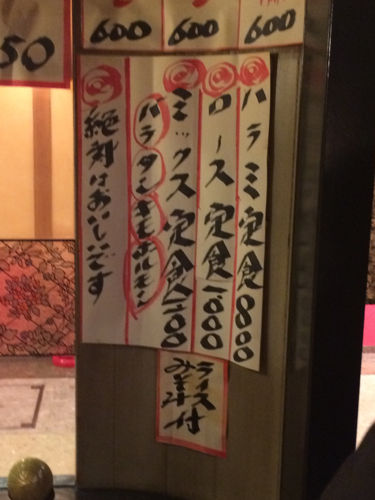 600
600
600
50
ハラミ定食800
ロース定食1000
ミックス定食1100
バラタンキモホルモン
絶対においしいです
ライス
みそ汁付